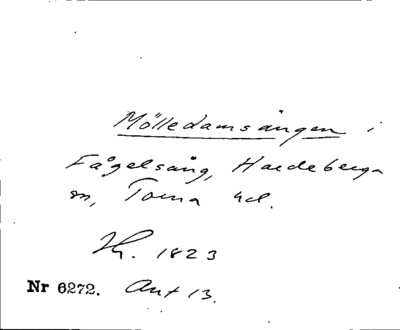 Mölledamsängen i
Fågelsång, Hardeberga
sn, Torna hd.
1823
Nr 6272. Ant 13.